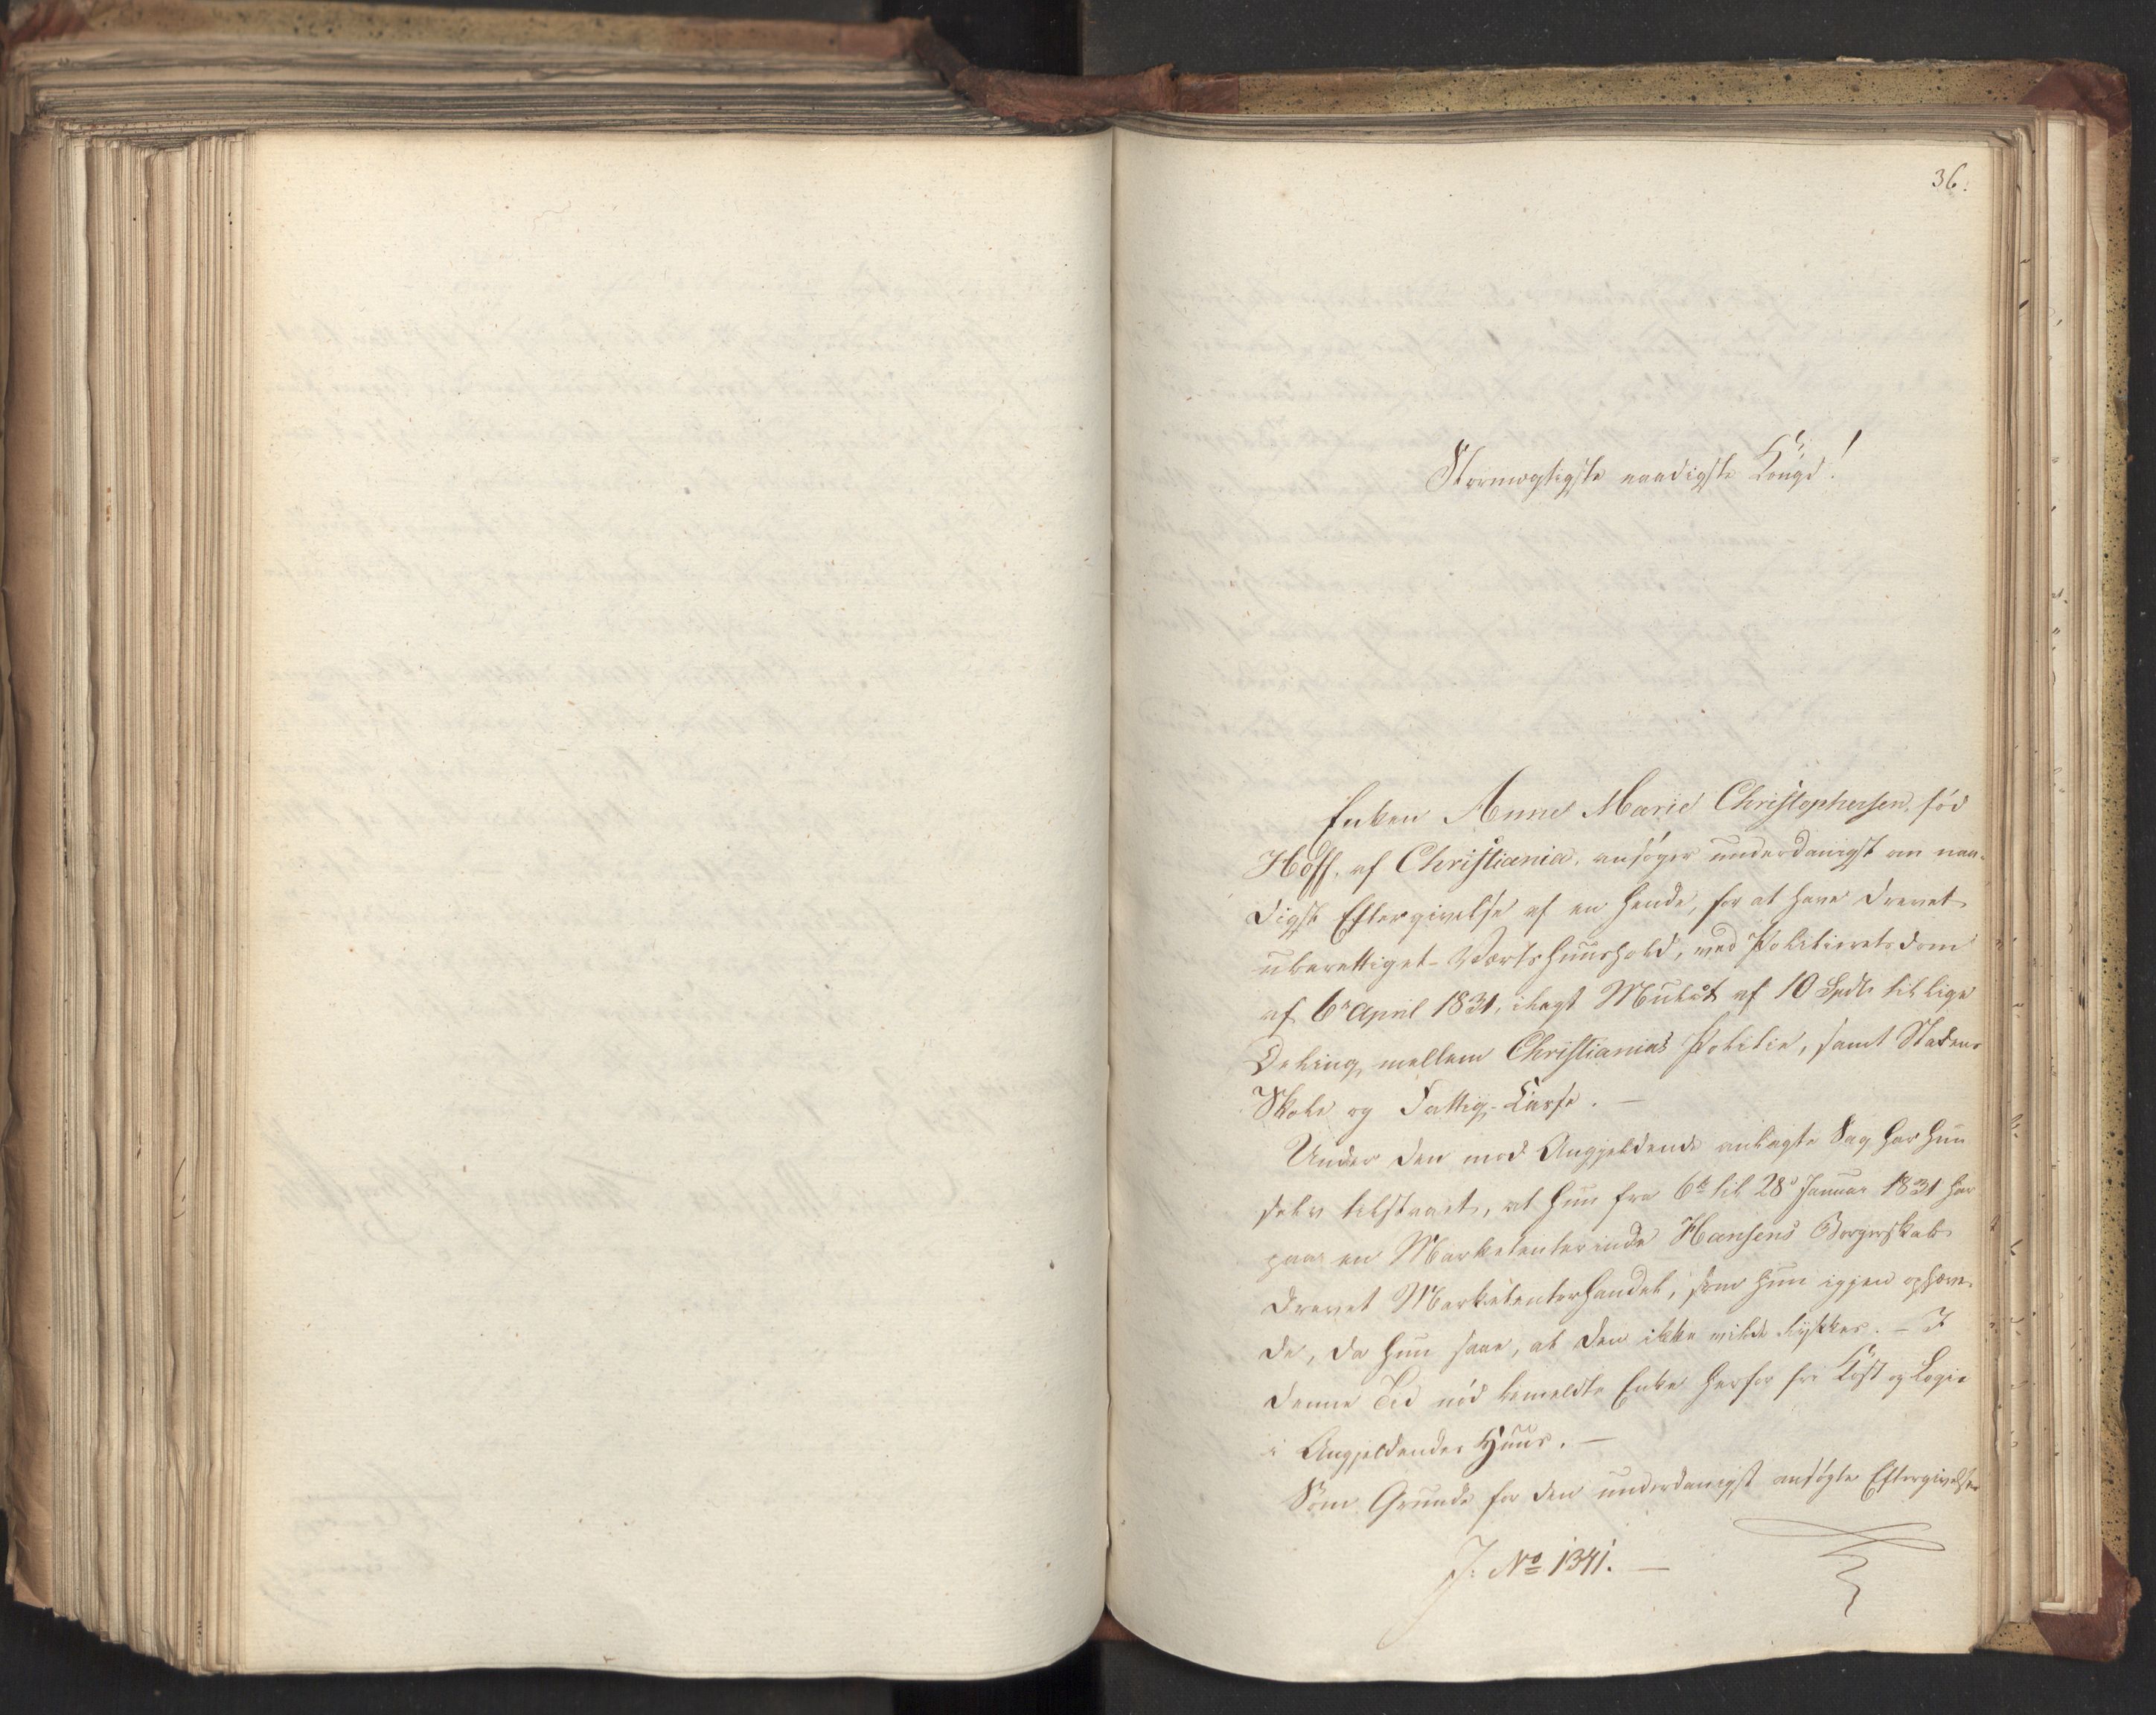 36.
Stormægtigste naadigste Konge!
Enken Anne Marie Christophersen, fød
Hoff, af Christiania, ansøger underdanigst om naa-
digst Eftergivelse af en hende, for at have drevet
uberettiget Værtshuushold, ved Politieretsdom
af 6te April 1831, ilagt Mulct af 10 Spdlr til lige
Deling mellem Christianias Politie, samt Stadens
Skole og Fattig-Casse. —
Under den mod Angjeldende anlagte Sag har hun
selv tilstaaet, at hun fra 6te til 28de Januar 1831 har
paa en Marketenterinde Hansens Borgerskab
drevet Marketenterhandel, som hun igjen ophæve-
de, da hun saae, at den ikke vilde lykkes. — I
denne Tid nød bemeldte Enke herfor fri Kost og Logie
i Angjeldendes Huus. —
Som Grunde for den underdanigst ansøgte Eftergivelse
J. No 1341. —